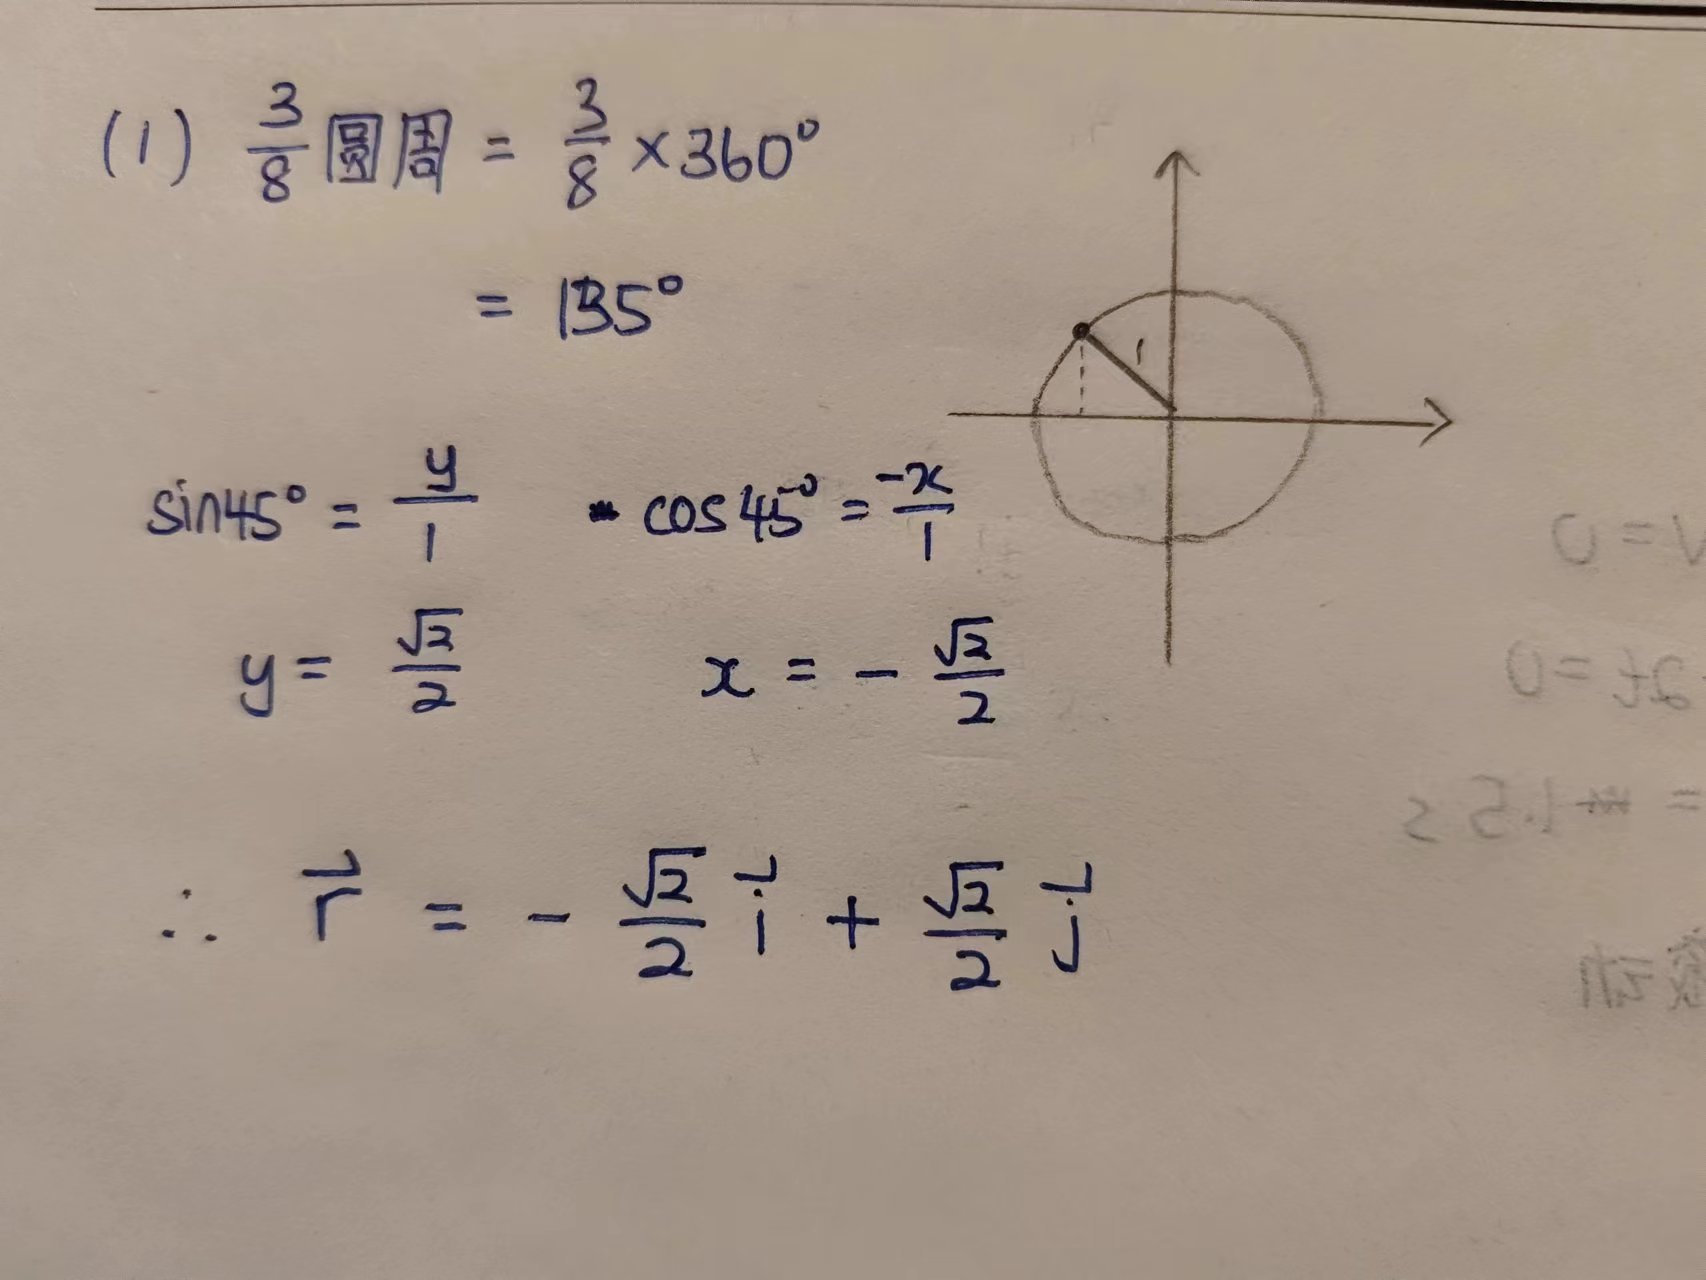 (1) 3/8 圓周 = 3/8 × 360°
= 135°
1
sin45° = y/1  cos45° = -x/1
y = √2/2  x = -√2/2
∴ r⃗ = -√2/2 i⃗ + √2/2 j⃗